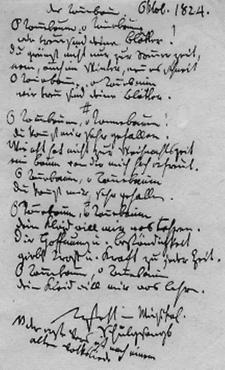 der Tannbaum Oktob. 1824.
O Tannbaum, o Tannbaum!
wie treu sind deine Blätter.
Du grünst nicht nur zur Sommerzeit,
nein auch im Winter, wenn es schneit
O Tannbaum, o Tannbaum
wie treu sind deine Blätter.
O Tannbaum, o Tannenbaum!
du kannst mir sehr gefallen!
Wie oft hat nicht zur Weihnachtszeit
ein Baum von dir mich hoch erfreut.
O Tannbaum, o Tannenbaum
du kannst mir sehr gefallen.
O Tannbaum, o Tannbaum
dein Kleid will mich was lehren.
Die Hoffnung u. Beständigkeit
giebt Trost u. Kraft zu jeder Zeit.
O Tannbaum, o Tannbaum
dein Kleid will mir was lehren.
nach einem
alten Volksliede